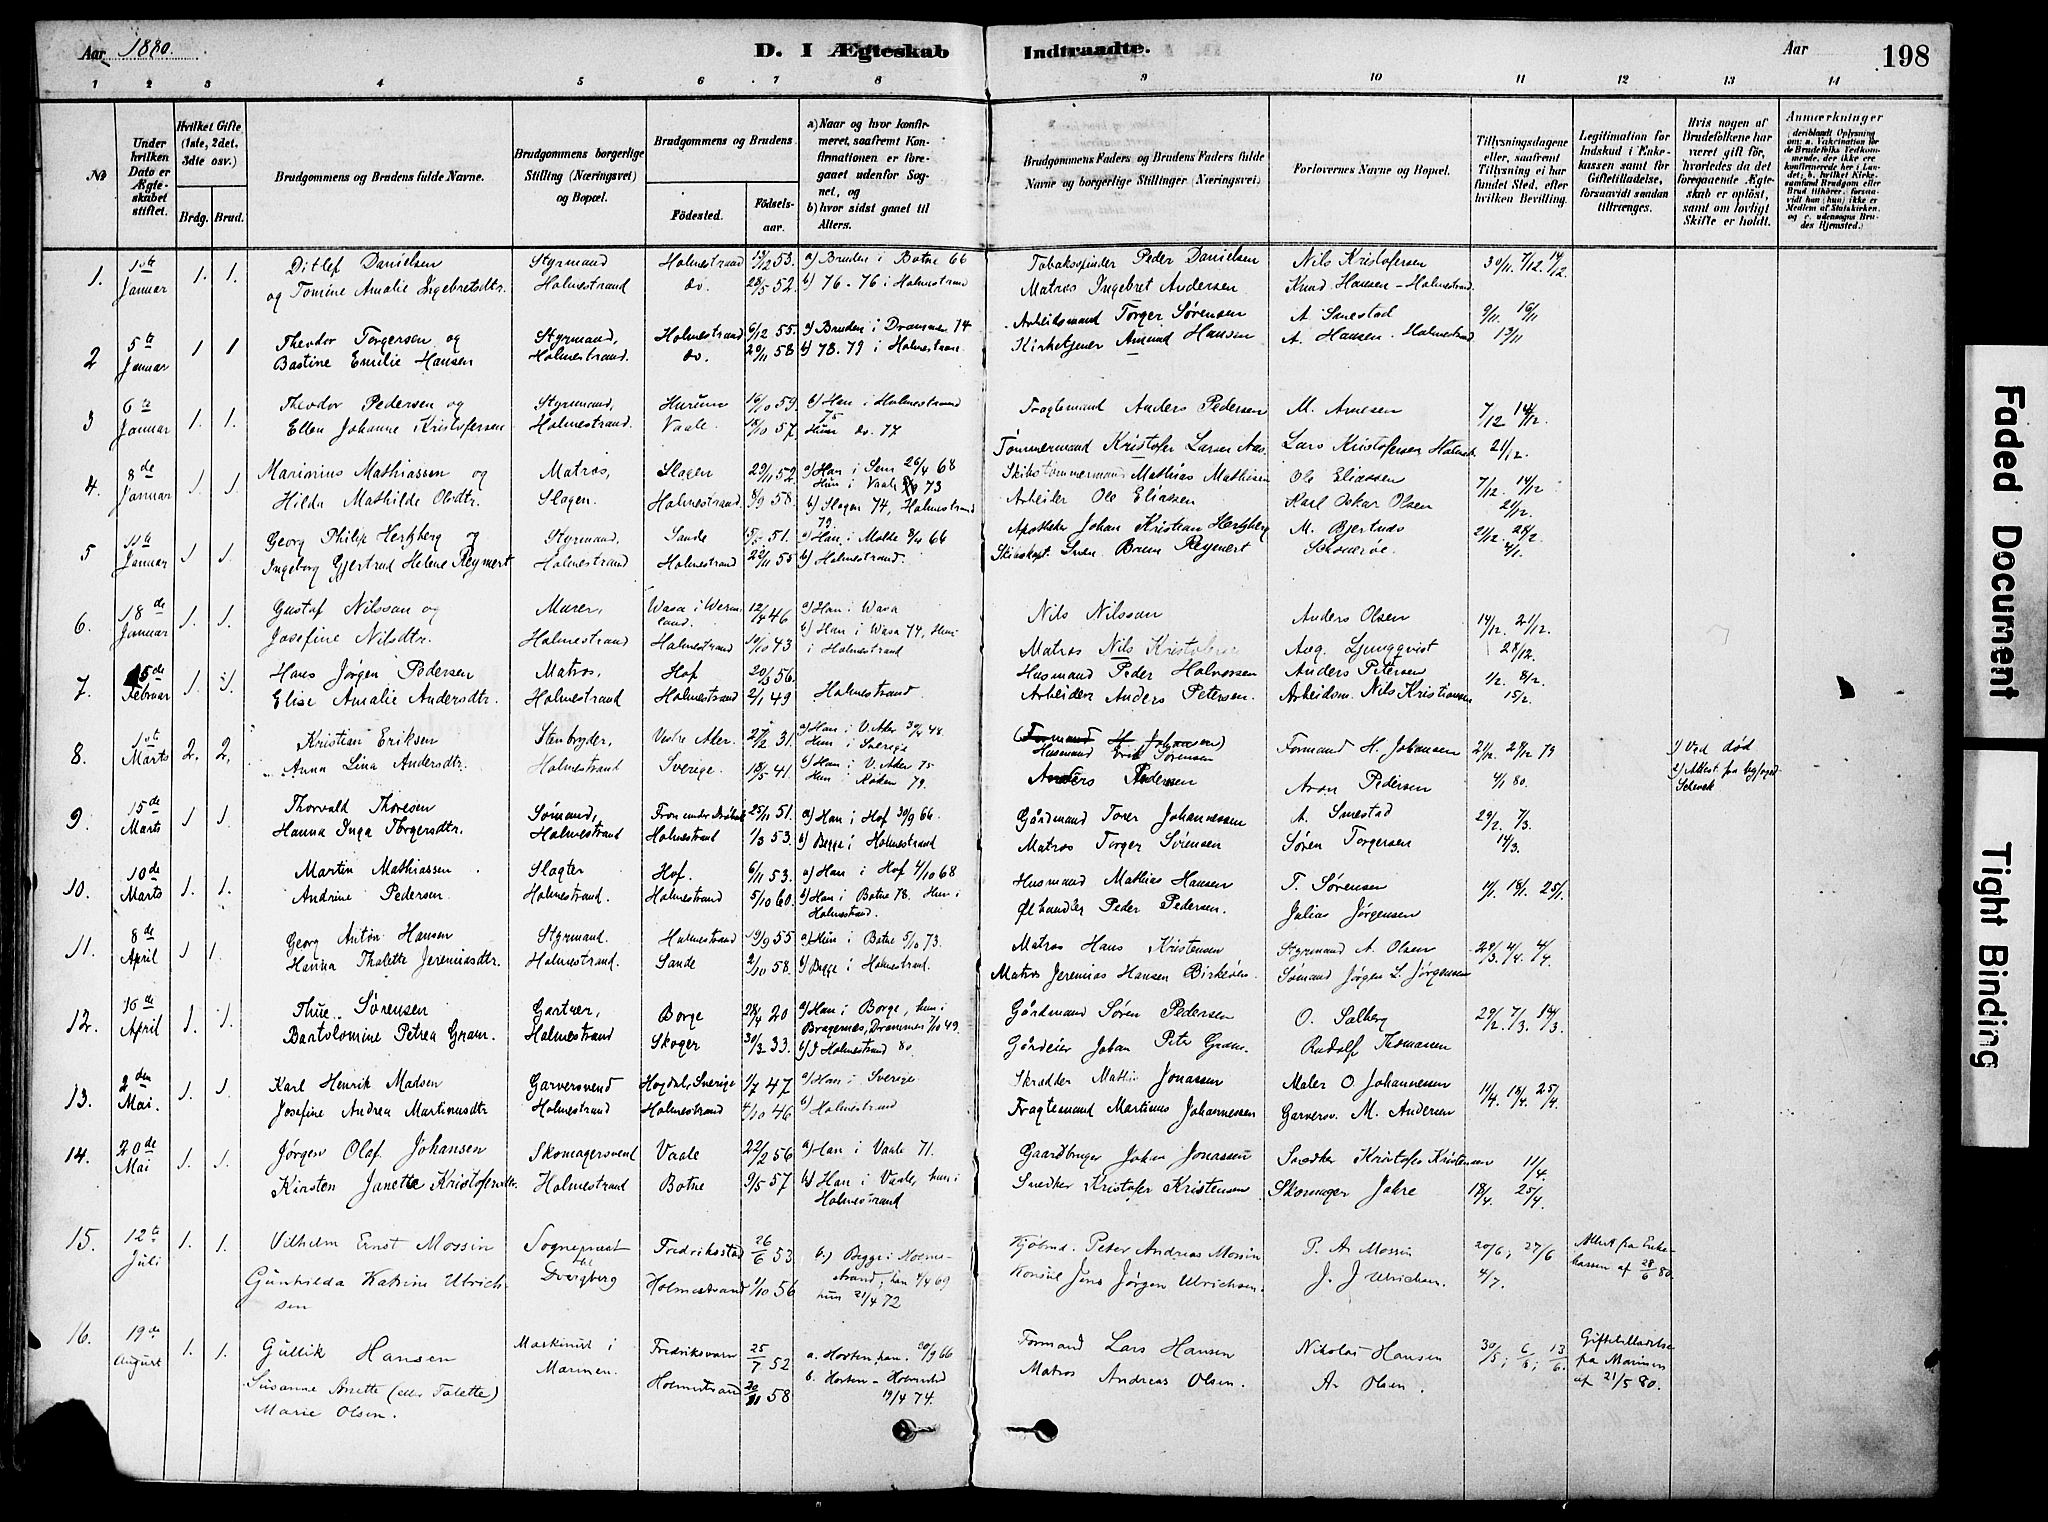 Aar 1880.
D. I Ægteskab Indtraadte.
Aar
198
1 2 3 4 5 6 7 8 9 10 11 12 13 14
No
Under hvilken Dato er Ægteskabet stiftet.
Hvilket Gifte (1ste, 2det, 3dte osv.)
Brdg. Brud.
Brudgommens og Brudens fulde Navne.
Brudgommens borgerlige Stilling (Næringsvei) og Bopæl.
Brudgommens og Brudens
Födested. Födselsaar.
a) Naar og hvor konfirmeret, saafremt Konfirmationen er foregaaet udenfor Sognet, og
b) hvor sidst gaaet til Alters.
Brudgommens Faders og Brudens Faders fulde Navne og borgerlige Stillinger (Næringsvei).
Forlovernes Navne og Bopæl.
Tillysningsdagene eller, saafremt Tillysning ei har fundet Sted, efter hvilken Bevilling.
Legitimation for Indskud i Enkekassen samt for Giftetilladelse, forsaavidt saadan tiltrænges.
Hvis nogen af Brudefolkene har været gift för, hvorledes da det foregaaende Ægteskab er oplöst, samt om lovligt Skifte er holdt.
Anmærkninger
(deriblandt Oplysning om: a. Vakcination for de Brudefolks Vedkommende, der ikke ere konfirmerede her i Landet; b. hvilket Kirkesamfund Brudgom eller Brud tilhörer, forsaavidt han (hun) ikke er Medlem af Statskirken, og c. udensogns Brudes Hjemsted.)
1. 1ste Januar 1. 1. Ditlef Danielsen Styrmand Holmestrand 13/12 53. a) Bruden i Botne 66 Tobaksspinder Peder Danielsen Nils Kristofersen 30/11. 7/12. 14/12.
og Tomine Amalie Ingebretsdtr. Holmestrand do. 28/5 52. b) 76-76 i Holmestrand Matros Ingebret Andersen Knud Hansen-Holmestrand
2 5te Januar 1 1 Theodor Torgersen og Styrmand, Holmestrand 6/12 55. a) Bruden i Drammen 74 Arbeidsmand Torger Sørensen A. Smestad 9/11. 16/11
Bastine Emilie Hansen Holmestrand. do. 20/11 58 b) 78. 79 i Holmestrand Kirketjener Amund Hansen A. Hansen. Holmestrand
3 6te Januar 1. 1. Theodor Pedersen og Styrmand, Hurum 59. b) Han i Holmestrand 75 Anders Pedersen M. Arnesen 7/12 14/12.
Ellen Johanne Kristofersen Holmestrand. Vaale. 18/10 57. Hun do. 77 Tømmermand Kristofer Larsen Aas. Lars Kristofersen 21/12.
4. 8de Januar 1. 1. Marinius Mathiassen og Matros, Slagen 29/11 52. a) Han i Sem 26/4 68 Hun i Vaale 73 Skibstømmermand Mathias Mathisen Ole Eliassen 7/12. 14/12
Hilda Mathilde Olsdtr. Slagen. Holmestrand 8/9 58. b) Slagen 74, Holmestrand 79. Arbeider Ole Eliassen Karl Oskar Olsen 21/12.
5 11te Januar 1 1. Georg Philip Herzberg og Styrmand, Sande 51. a) Han i Molde 66 Apotheker Johan Kristian Herzberg M. Bjertnæs 21/12. 28/12.
Ingeborg Gjertrud Helene Reymert Holmestrand Holmestrand 22/11 55 b) Holmestrand. Skibskapt. Sven Brun Reymert 4/1.
6. 18de Januar 1. 1. Gustaf Nilsson og Murer, Wasa i Wermland. 46 a) Han i Wasa Nils Nilsson Anders Olsen 14/12. 21/12.
Josefine Nilsdtr. Holmestrand Holmestrand 10/10 43 b) Han i Wasa 74, Hun i Holmestrand Matros Nils Kristofersen Aug. Ljungqvist 28/12.
7. 15de Februar 1. 1. Hans Jørgen Pedersen Matros, Hof 20/3 56. Holmestrand. Husmand Peder Halvorsen Anders Petersen 1/2. 8/2.
Elise Amalie Andersdtr. Holmestrand Holmestrand 2/1 49 Arbeider Anders Petersen. Arbeidsm. Nils Kristiansen 15/2.
8. 1ste Marts 2. 2. Kristian Eriksen Stenbryder, Vestre Aker. 27/2 31. a) Han i V. Aker 48. Hun i Sverige (Formand H. Johansen) Husmand Erik Sørensen Formand H. Johansen 21/12. 28/12 79 1) Ved død
Anna Lina Andersdtr. Holmestrand Sverige. 18/5 41. b) Han i V. Aker 75 Hun i Røken 79. Anders Pedersen Aron Pedersen 4/1 80. 2) Attest fra
9. 15de Marts 1 1. Thorvald Thoresen Sømand, 25/11 51. a) Han i Hof 30/9 66. Gårdmand Torer Johannessen A. Smestad 29/2. 7/3.
Hanna Inga Torgersdtr. Holmestrand Holmestrand 1/3 53. b) Begge i Holmestrand Matros Torger Sørensen Søren Torgersen 14/3.
10. 10de Marts 1. 1. Martin Mathiassen Slagter Hof. 6/11 53. a) Han i Hof 4/10 68 Husmand Mathias Hansen T. Sørensen 11/1. 18/1. 25/1.
Andrine Pedersen. Holmestrand. Holmestrand 5/10 60. b) Han i Botne 78. Hun i Holmestrand. Ølhandler Peder Pedersen. Julius Jørgensen
11. 8de April 1 1. Georg Anton Hansen Styrmand. Holmestrand 19/9 55 a) Hun i Botne 5/10 73. Matros Hans Kristensen Styrmand A. Olsen 29/3. 4/4. 4/4.
Hanna Thalette Jeremiasdtr. Holmestrand. Sande 2/10 58. b) Begge i Holmestrand. Matros Jeremias Hansen Sømand Jørgen L. Jørgensen
12. 16de April 1. 1. Thue Sørensen Gartner, Borge 28/4 20 a) Han i Borge, hun i Bragernes, Drammen 7/10 49. Gårdmand Søren Pedersen O. Solberg 29/2. 7/3. 14/3.
Bartolomine Petrea Gram. Holmestrand Skoger 30/3 33. b) I Holmestrand 80. Gårdeier Johan Petr Gram. Rudolf Thomassen
13. 2den Mai. 1. 1. Karl Henrik Madsen Garversvend Hogdal, Sverige 1/7 47 a) Han i Sverige Skrædder Jonassen Maler O. Johannesen 11/4. 18/4. 25/4.
Josefine Andrea Martinusdtr Holmestrand Holmestrand 4/10 46 b) Holmestrand Fragtemand Martinus Johannessen Garversv. M. Andersen
14. 20de Mai 1. 1. Jørgen Olaf Johansen Skomagersvend Vaale 22/2 56 a) Han i Vaale 71. Gaardbruger Johan Jonassen Snedker Kristofer Kristensen 11/4.
Kirsten Janette Kristofersdtr. Holmestrand Botne 9/5 57 b) Han i Vaale, hun i Holmestrand Snedker Kristofer Kristensen Skomager Jahre 18/4 25/4.
15. 12te Juli 1. 1. Vilhelm Ernst Mossin Sognepræst til Fredriksstad 26/6 53 b.) Begge i Holmestrand, han 69 hun 21/4 72 Kjøbmd. Peter Andreas Mossin P. A. Mossin 20/6; 27/6 Attest fra Enkekassen af 28/6 80.
Gunhilda Katrine Ulrichsen Dverberg Holmestrand 1/10 56 Konsul Jens Jørgen Ulrichsen. J. J Ulrichsen. 4/7.
16. 19de August 1. 1. Gullik Hansen Maskinist i Fredriksvern 25/7 52 a. Horten, han. 66 Formand Lars Hansen Nikolai Hansen 30/5; 6/6; 13/6. Giftetilladelse fra Marinen af 21/5 80.
Susanne Anette (eller Talette) Marie Olsen. Marinen. Holmestrand 58 b. Horten - Holmestrd 19/4 74. Matros Andreas Olsen. A. Olsen.
Faded Document
Tight Binding